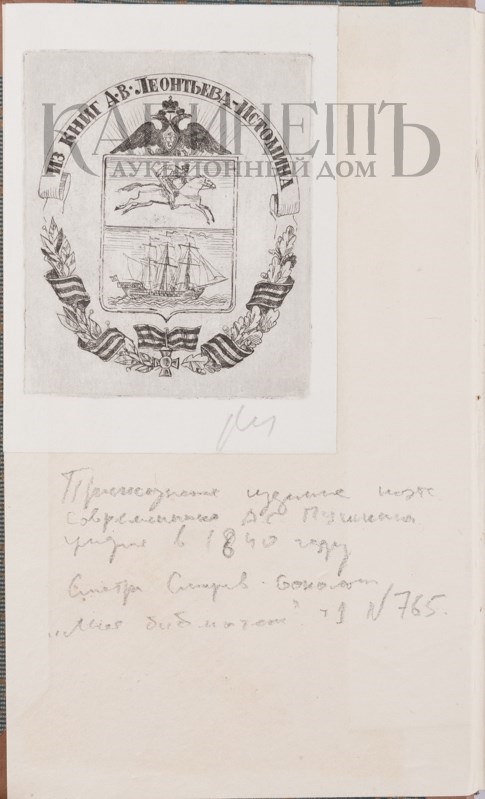 ИЗ КНИГ А·В·ЛЕОНТЬЕВА-ИСТОМИНА
КАБИНЕТЪ
АУКЦИОННЫЙ ДОМ
издание поэта
современника А.С. Пушкина
в 1840 году
Смотри Смирнов-Сокольский
„Моя библиотека" т 1 N 765.